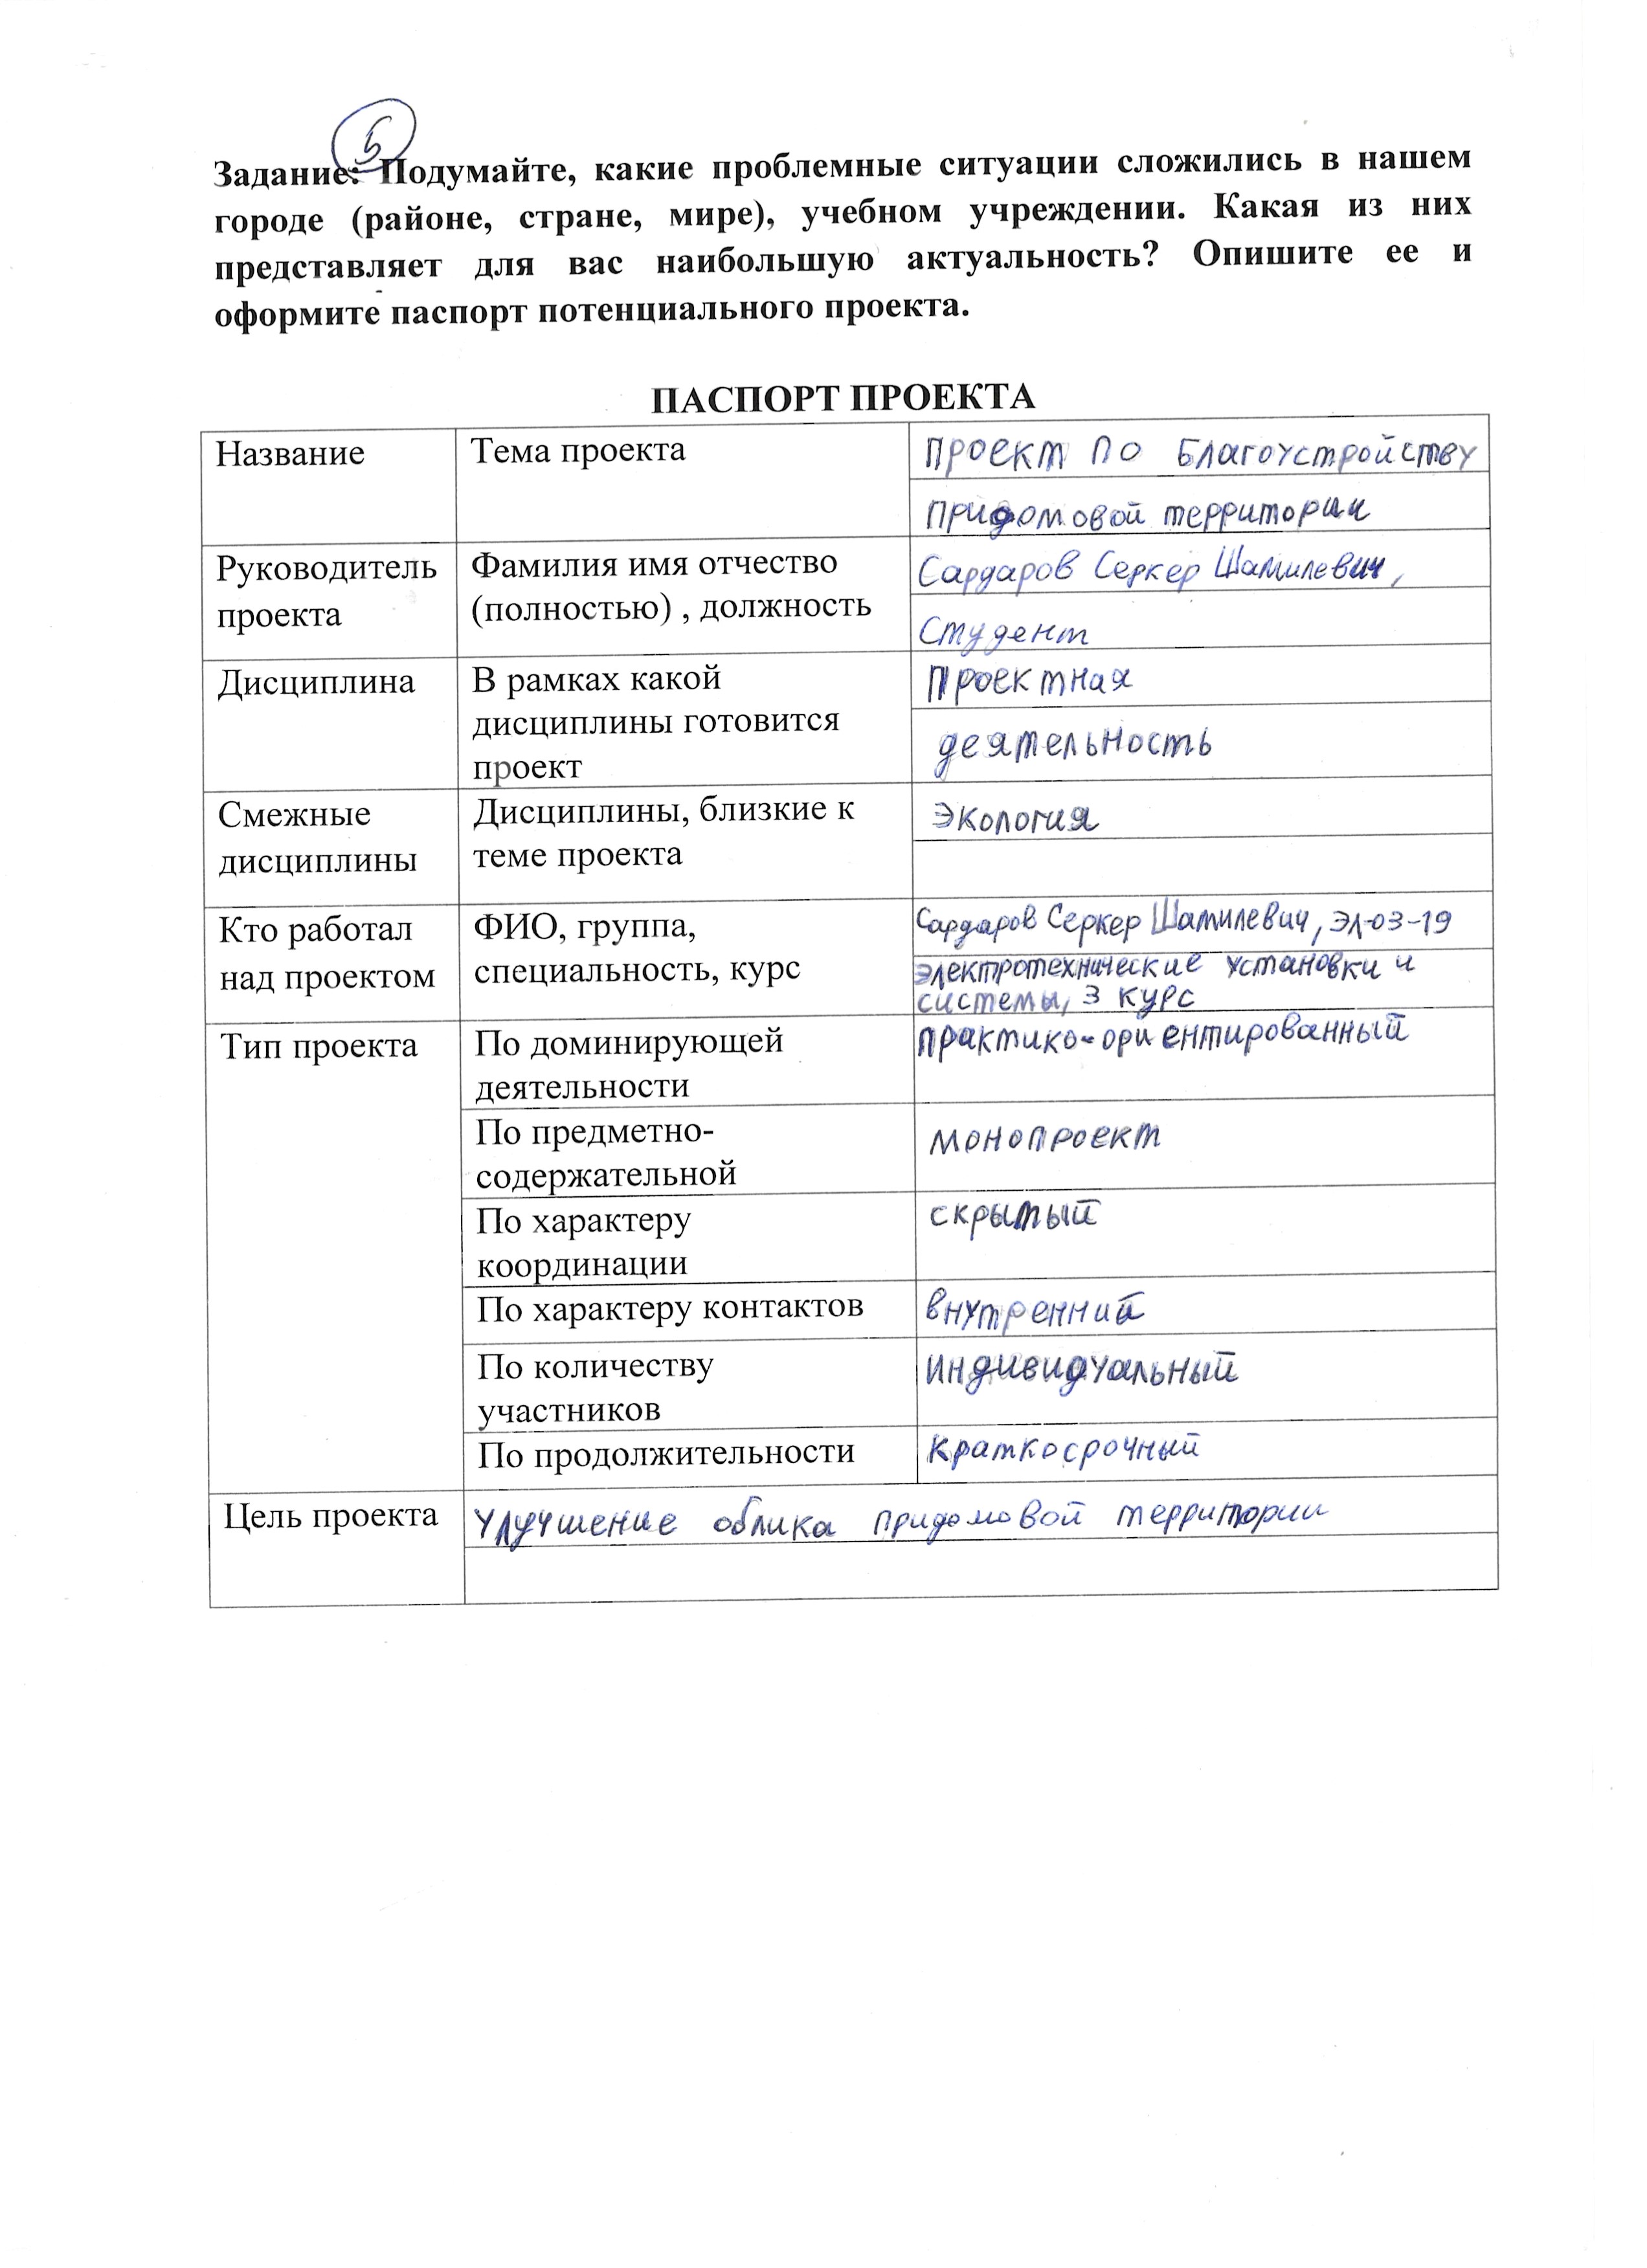 5
Задание: Подумайте, какие проблемные ситуации сложились в нашем
городе (районе, стране, мире), учебном учреждении. Какая из них
представляет для вас наибольшую актуальность? Опишите ее и
оформите паспорт потенциального проекта.
ПАСПОРТ ПРОЕКТА
Название
Тема проекта
Проект по благоустройству
придомовой территории
Руководитель
проекта
Фамилия имя отчество
(полностью) , должность
Сардаров Серкер Шамилевич,
Студент
Дисциплина
В рамках какой
дисциплины готовится
проект
Проектная
деятельность
Смежные
дисциплины
Дисциплины, близкие к
теме проекта
Экология
Кто работал
над проектом
ФИО, группа,
специальность, курс
Сардаров Серкер Шамилевич, ЭЛ-03-19
электротехнические установки и
системы, 3 курс
Тип проекта
По доминирующей
деятельности
практико-ориентированный
По предметно-
содержательной
монопроект
По характеру
координации
скрытый
По характеру контактов
внутренний
По количеству
участников
индивидуальный
По продолжительности
краткосрочный
Цель проекта
улучшение облика придомовой территории